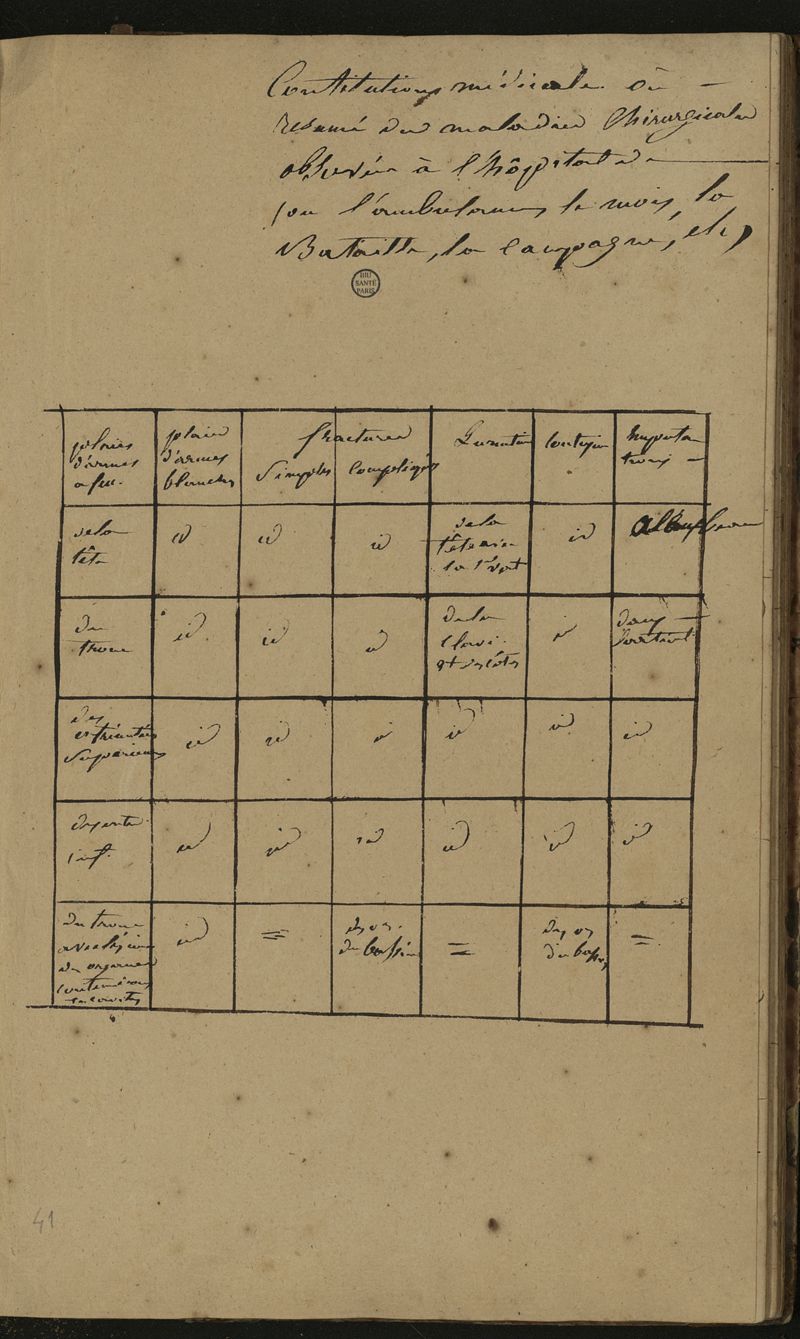 Constitutions médicale où —
résumé des maladies Chirurgicales
observées à l'hôpital de
(ou l'ambulance le mois, la
Bataille, la campagne, etc,
BIU
SANTÉ
PARIS
plaies
d'armes
a feu.
plaies
d'armes
blanches
fractures
Simples
compliqués
Luxation
Contusion
Amputa
tions —
de la
tête
id
id
id
de la
la
id
du
tronc
id
id
id
de la
clavi.
et des côtes
id
dans
des
extrémités
Supérieures
id
id
id
id
id
id
des extr.
inf.
id
id
id
id
id
id
du tronc
avec lésions
des organes
contenus
id
=
des os
du bassin
=
des os
du bassin
=
41